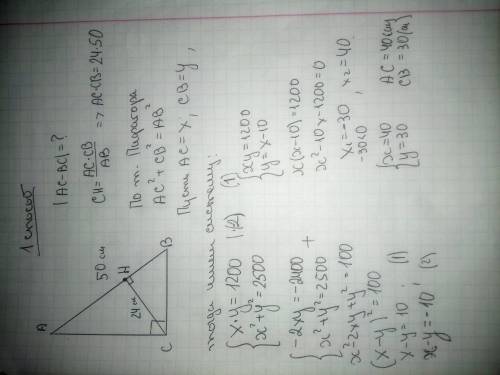 1 способ
A
50 см
H
24 см
C
B
|AC-BC|=?
CH=AC·CB/AB => AC·CB=24·50
По т. Пифагора
AC²+CB²=AB²
Пусть AC=x, CB=y,
тогда имеем систему:
{x·y=1200 |·(-2)
{x²+y²=2500
{-2xy=-2400
{x²+y²=2500 +
x²-2xy+y²=100
(x-y)²=100
x-y=10; (1)
x-y=-10; (2)
(1) {xy=1200
{y=x-10
x(x-10)=1200
x²-10x-1200=0
x₁=-30, x₂=40.
-30<0
{x=40
{y=30
AC=40(см)
CB=30(см)